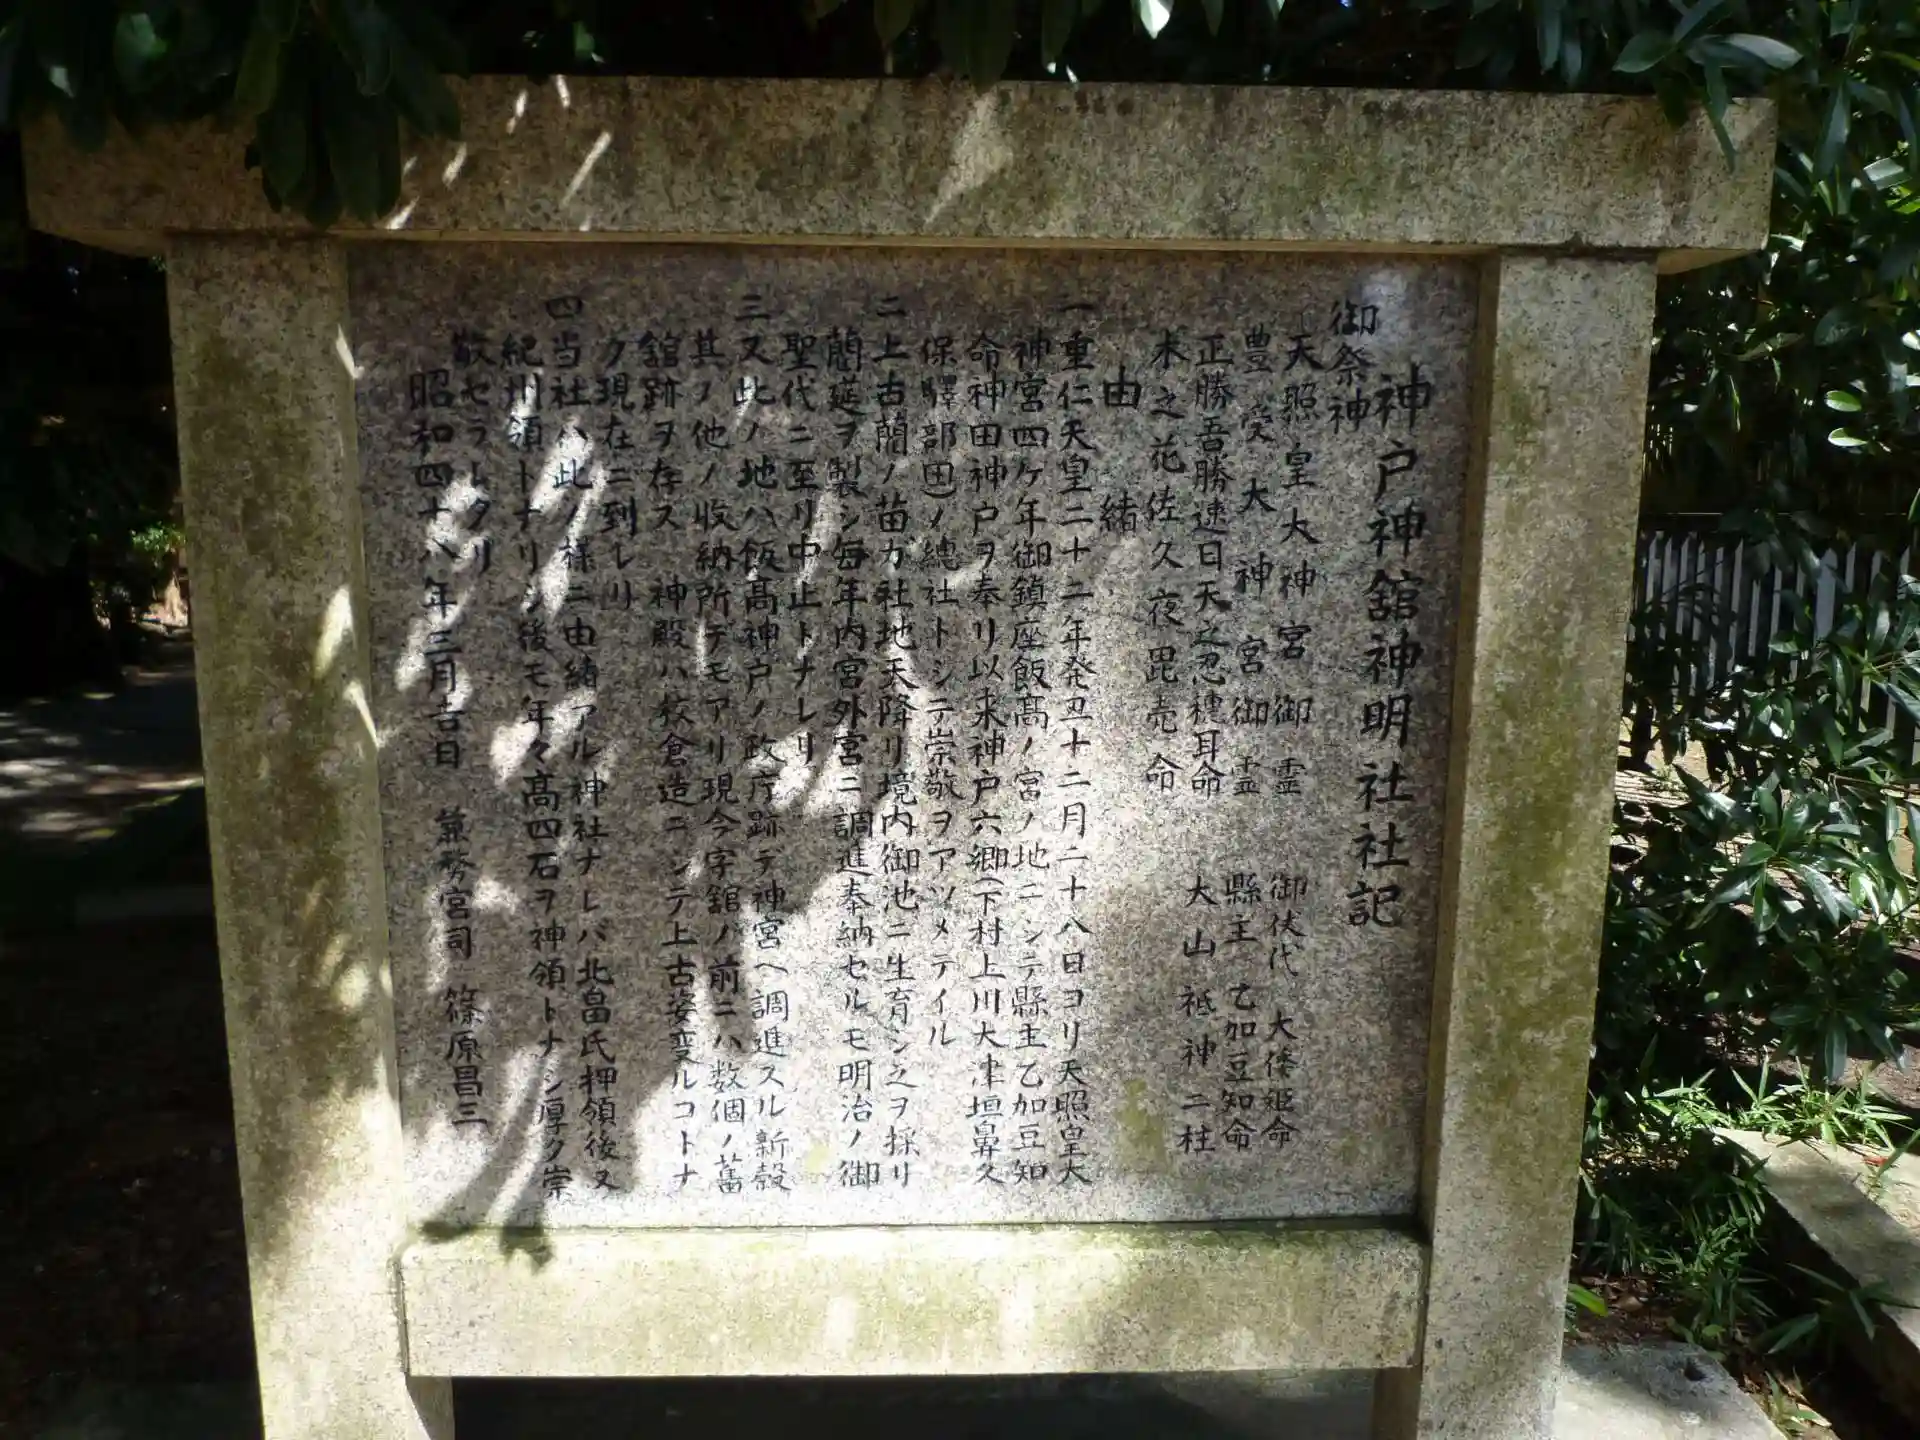 神戸神舘神明社社記
御祭神
天照皇大神宮御霊　御伏代　大倭姫命
豊受大神宮御霊　縣主　乙加豆知命
正勝吾勝速日天之忍穂耳命　大山祇神二柱
木之花佐久夜毘売命
由緒
一重仁天皇二十二年発丑十二月二十八日ヨリ天照皇大
神宮四ケ年御鎮座飯髙ノ宮ノ地ニシテ縣主乙加豆知
命神田神戸ヲ奉リ以来神戸六郷(下村上川大津垣鼻久
保驛部田)ノ總社トシテ崇敬ヲアツメテイル
二上古藺ノ苗カ社地天降リ境内御池ニ生育シ之ヲ採リ
藺莚ヲ製シ毎年内宮外宮ニ調進奉納セルモ明治ノ御
聖代ニ至リ中止トナレリ
三又此ノ地ハ飯髙神戸ノ政庁跡デ神宮ヘ調進スル新穀
其ノ他ノ收納所デモアリ現今字舘ノ前ニハ数個ノ舊
舘跡ヲ存ス　神殿ハ校倉造ニシテ上古姿変ルコトナ
ク現在ニ到レリ
四当社ハ此ノ様ニ由緒アル神社ナレバ北畠氏押領後又
紀州領トナリシ後モ年々髙四石ヲ神領トナシ厚ク崇
敬セラレタリ
昭和四十八年三月吉日　兼務宮司　篠原昌三